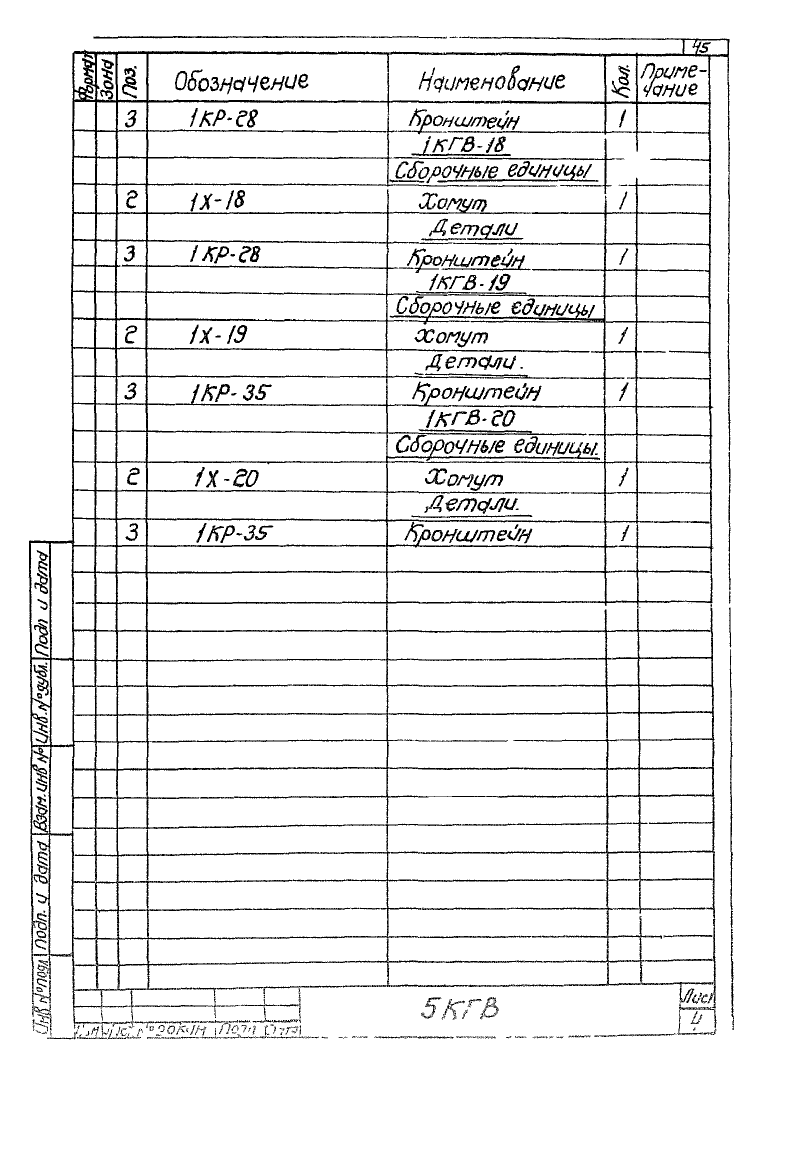 45
Формат Зона Поз. Обозначение Наименование Кол. Приме-
чание
3 1КР-28 Кронштейн 1
1КГВ-18
Сборочные единицы
2 1Х-18 Хомут 1
Детали
3 1КР-28 Кронштейн 1
1КГВ-19
Сборочные единицы
2 1Х-19 Хомут 1
Детали.
3 1КР-35 Кронштейн 1
1КГВ-20
Сборочные единицы.
2 1Х-20 Хомут 1
Детали.
3 1КР-35 Кронштейн 1
Подп и дата
Инв.№дубл.
Взам.инв №
Подп. и дата
Инв №подл
5КГВ
Лист
№докум Подп Дата